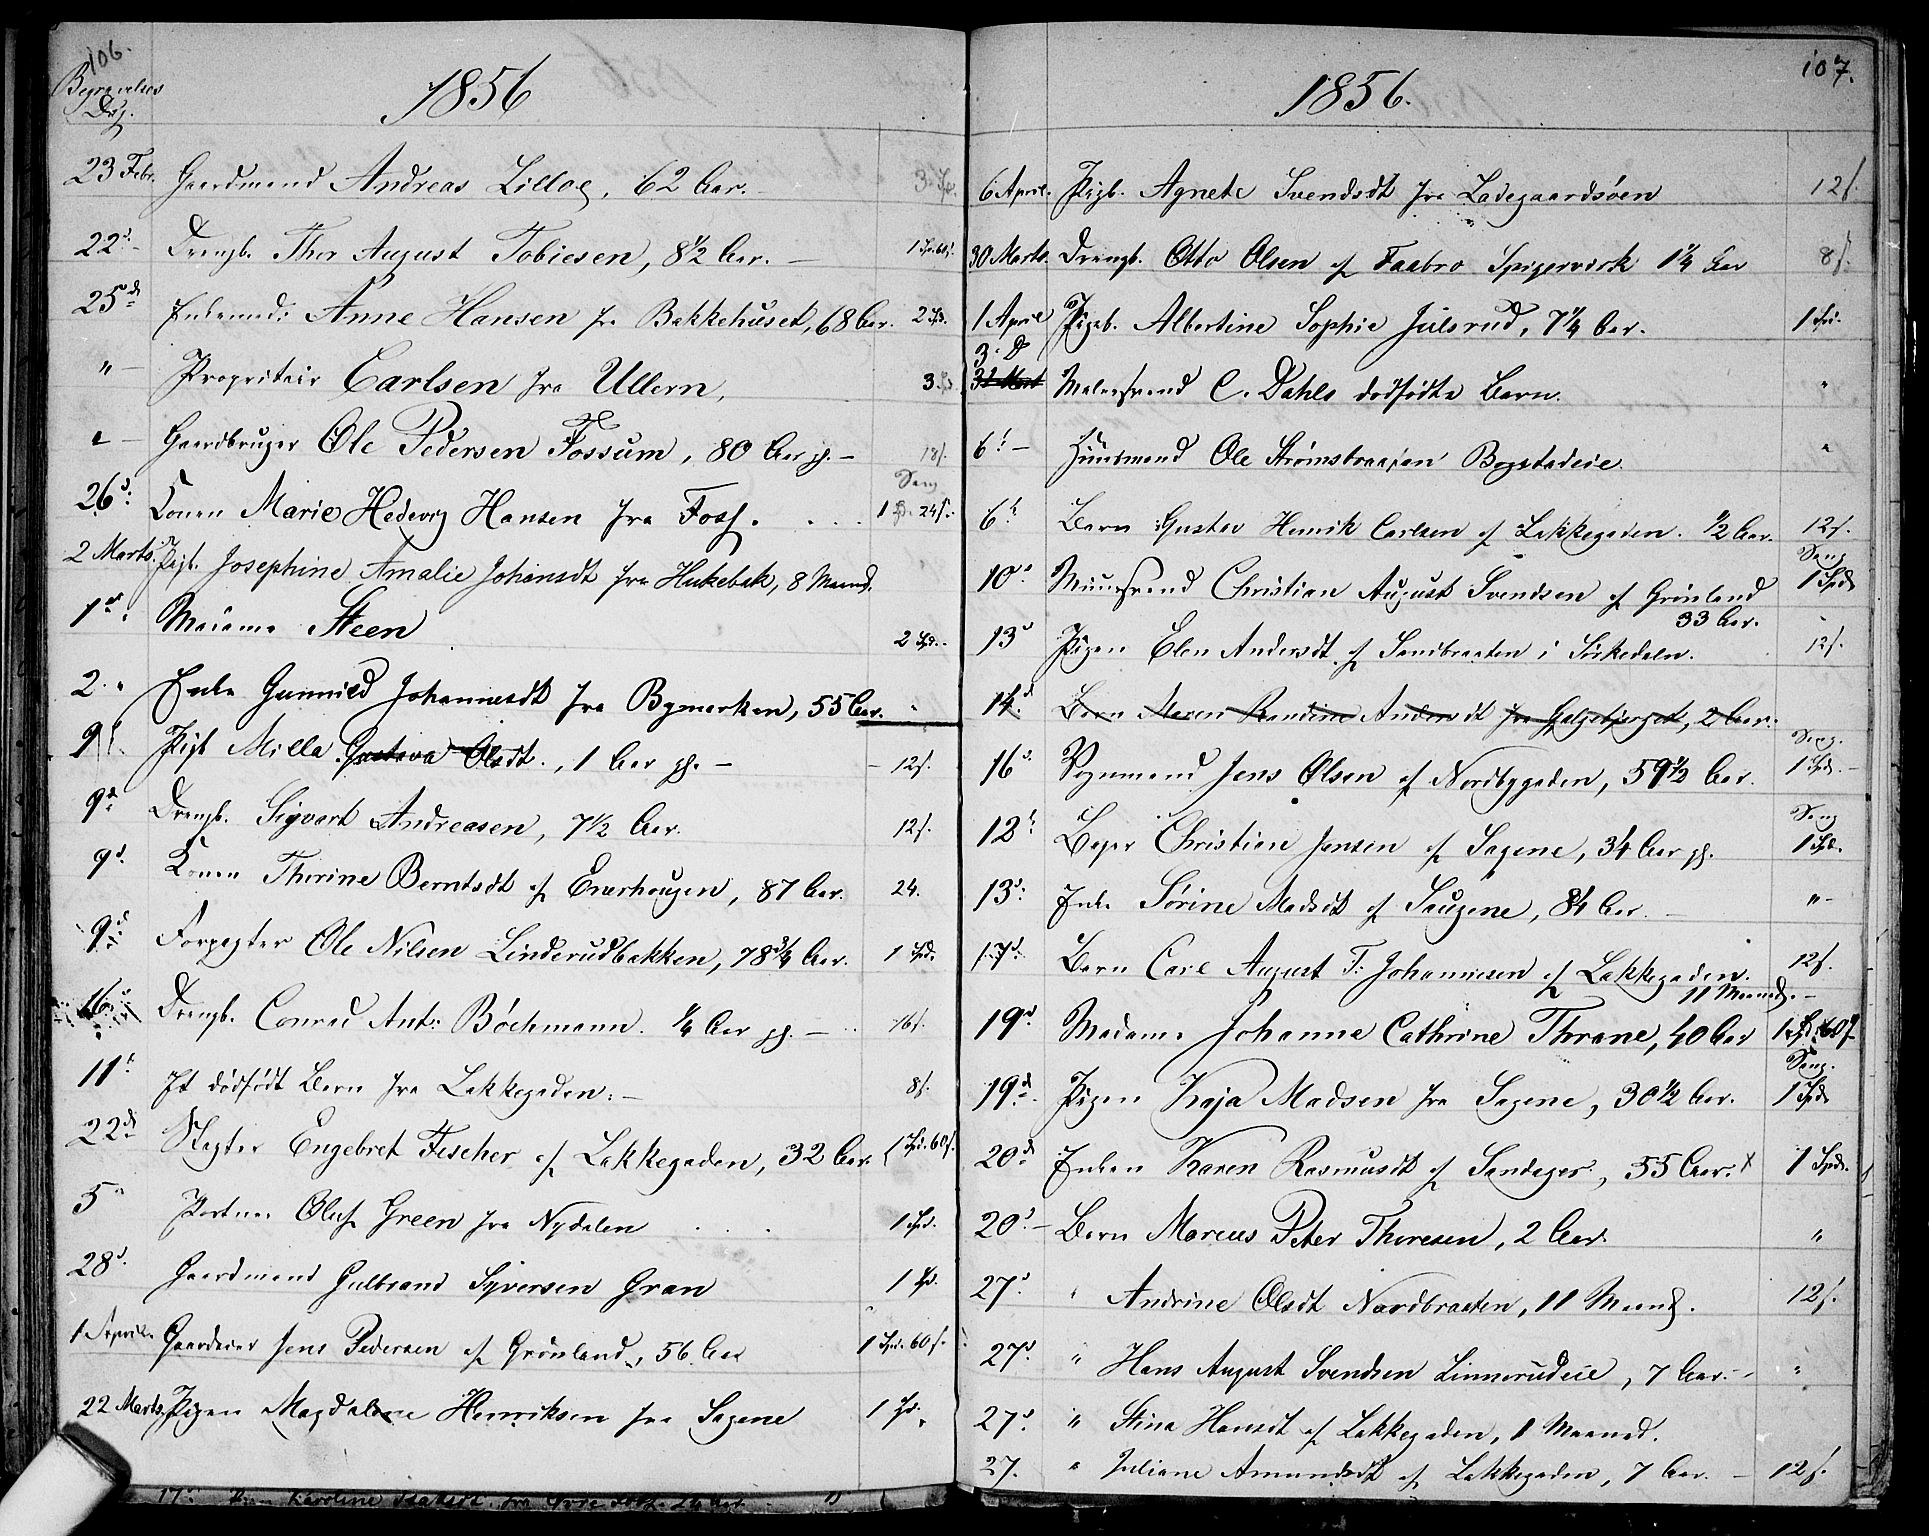 106.
Begravelses
Dag.
1856
23 Febr. Gaardmand Andreas Lilloe, 62 Aar. 3 Sp.
22d – Drengb. Thor August Tobiesen, 8½ Aar. – 1 Sp. 60 s.
25d Enkemad: Anne Hansen fra Bakkehuset, 68 Aar. 2 Spd.
" – Propritair Carlsen fra Ullern, 3.
" – Gaardbruger Ole Pedersen Fossum, 80 Aar gl. – 18 s.
Sang
26d: Konen Marie Hedevig Hansen fra Foss. . . . 1 Sp. 24 s.
2 Marts. Pigb. Josephine Amalie Johansdt fra Hukebak, 8 Maand.
1d. Madame Steen 2 Spd.
2. " Enke Gunnild Johannesdt fra Bymarken, 55 Aar. "
9d. Pigb Milla Gustava Olsdt., 1 Aar gl. – – 12 s.
9d Drengb. Sigvart Andreasen, 7½ Aar. 12 s.
9d. Konen Therine Berntsdt af Enerhougen, 87 Aar. 24.
9d: Forpagter Ole Nilsen Linderudbakken, 78¾ Aar. 1 Spd.
16d Drengb. Conrad Ant: Böchmann. ¼ Aar gl. – 16 s.
11d. Et dödfödt Barn fra Lakkegaden. – 8 s.
22d Slagter Engebret Fischer af Lakkegaden, 32 Aar. 1 Spd. 60 s.
5 " Portner Oluf Green fra Nydalen . . . 1 Spd.
28d. Gaardmand Gulbrand Syversen Gran 1 Sp.
1 April. Gaardeier Jens Pedersen af Grönland, 56 Aar 1 Spd. 60 s.
22 Marts. Pigen Magdalene Henriksen fra Sagene 1 Sp.
107.
1856.
6 April. Pigb. Agnete Svendsdt fra Ladegaardsöen 12 s.
30 Marts. Drengb. Otto Olsen af Faabro Spigerverk 1¼ Aar 8 s.
1 April Pigeb. Albertine Sophie Julsrud, 7¼ Aar. 1 Spd.
3. D
31 Mart Malersvend C. Dahls dodfödte Barn. "
6d – Huusmand Ole Strömsbraaten Bogstadeie. "
6d. Barn Gustav Henrik Carlsen af Lakkegaden. ½ Aar. 12 s.
Sang
10d Muursvend Christian August Svendsen af Grönland 1 Spd
33 Aar.
13d Pigen Elen Andersdt af Sandbraaten i Sörkedalen. 12 s.
14d Barn Maren Randine Andersdt fra Galgebjerget, 2 Aar.
Sang.
16d. Vognmand Jens Olsen af Nordbygaden, 59½ Aar. 1 Spd. –
Sang
12d. Bager Christian Jensen af Sagene, 34 Aar gl. 1 Spd.
13d: Enke Sörine Madsdt af Saugene, 84 Aar. – " –
17d. Barn Carl August T: Johannesen af Lakkegaden. 12 s.
11 Maaned. –
19d. Madame Johanne Cathrine Thrane, 40 Aar 1 Sp. 60 s
Sang.
19d. Pigen Kaja Madsen fra Sagene, 30½ Aar. 1 Spd.
20d Enken Karen Rasmusdt af Sandager, 55 Aar. x 1 Spd.
20d – Barn Marcus Peter Thoresen, 2 Aar. "
27d. " Andrine Olsdt Nordbraaten, 11 Maand. 12 s.
27d. " Hans August Svendsen Linnerudeie, 7 Aar. – "
27d. " Stina Hansdt af Lakkegaden, 1 Maaned.
27. " Juliane Amundsdt af Lakkegaden, 7 Aar. – 12 s.